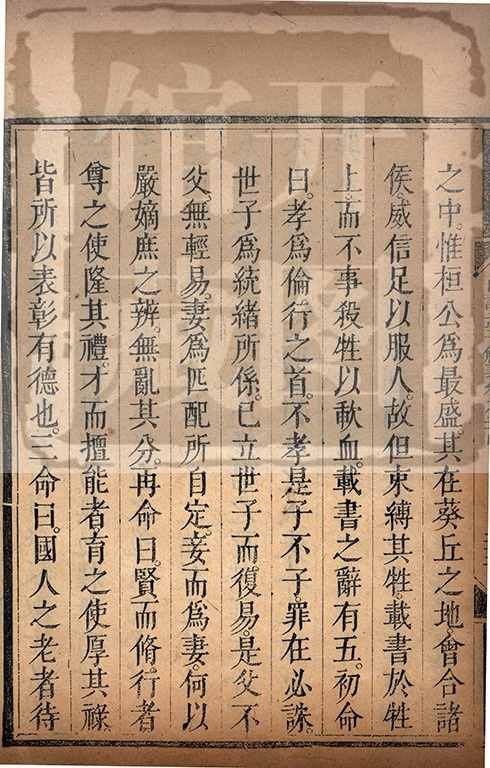 之中。惟桓公爲最盛。其在葵丘之地。會合諸
侯。威信足以服人。故但束縛其牲。載書於牲
上。而不事殺牲以歃血。載書之辭有五。初命
曰。孝爲倫行之首。不孝是子不子。罪在必誅。
世子爲統緒所係。已立世子而。復易。是父不
父。無輕易。妻爲匹配所自定。妾而爲妻。何以
嚴嫡庶之辨。無亂其分。再命曰。賢而脩。行者
尊之使隆其禮。才而擅能者育之使厚其祿。
皆所以表彰有德也。三命曰。國人之老者待